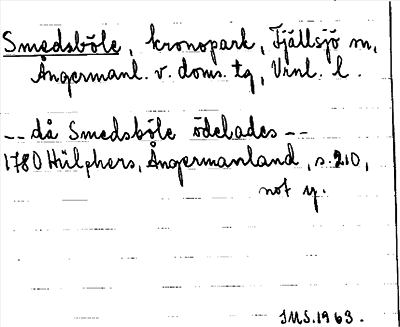 Smedsböle, kronopark, Fjällsjö sn,
Ångermanl. v. doms. tg, Vrnl. l.
-- då Smedsböle ödelades --
1780 Hülphers, Ångermanland, s. 210,
not y.
IMS. 1963.